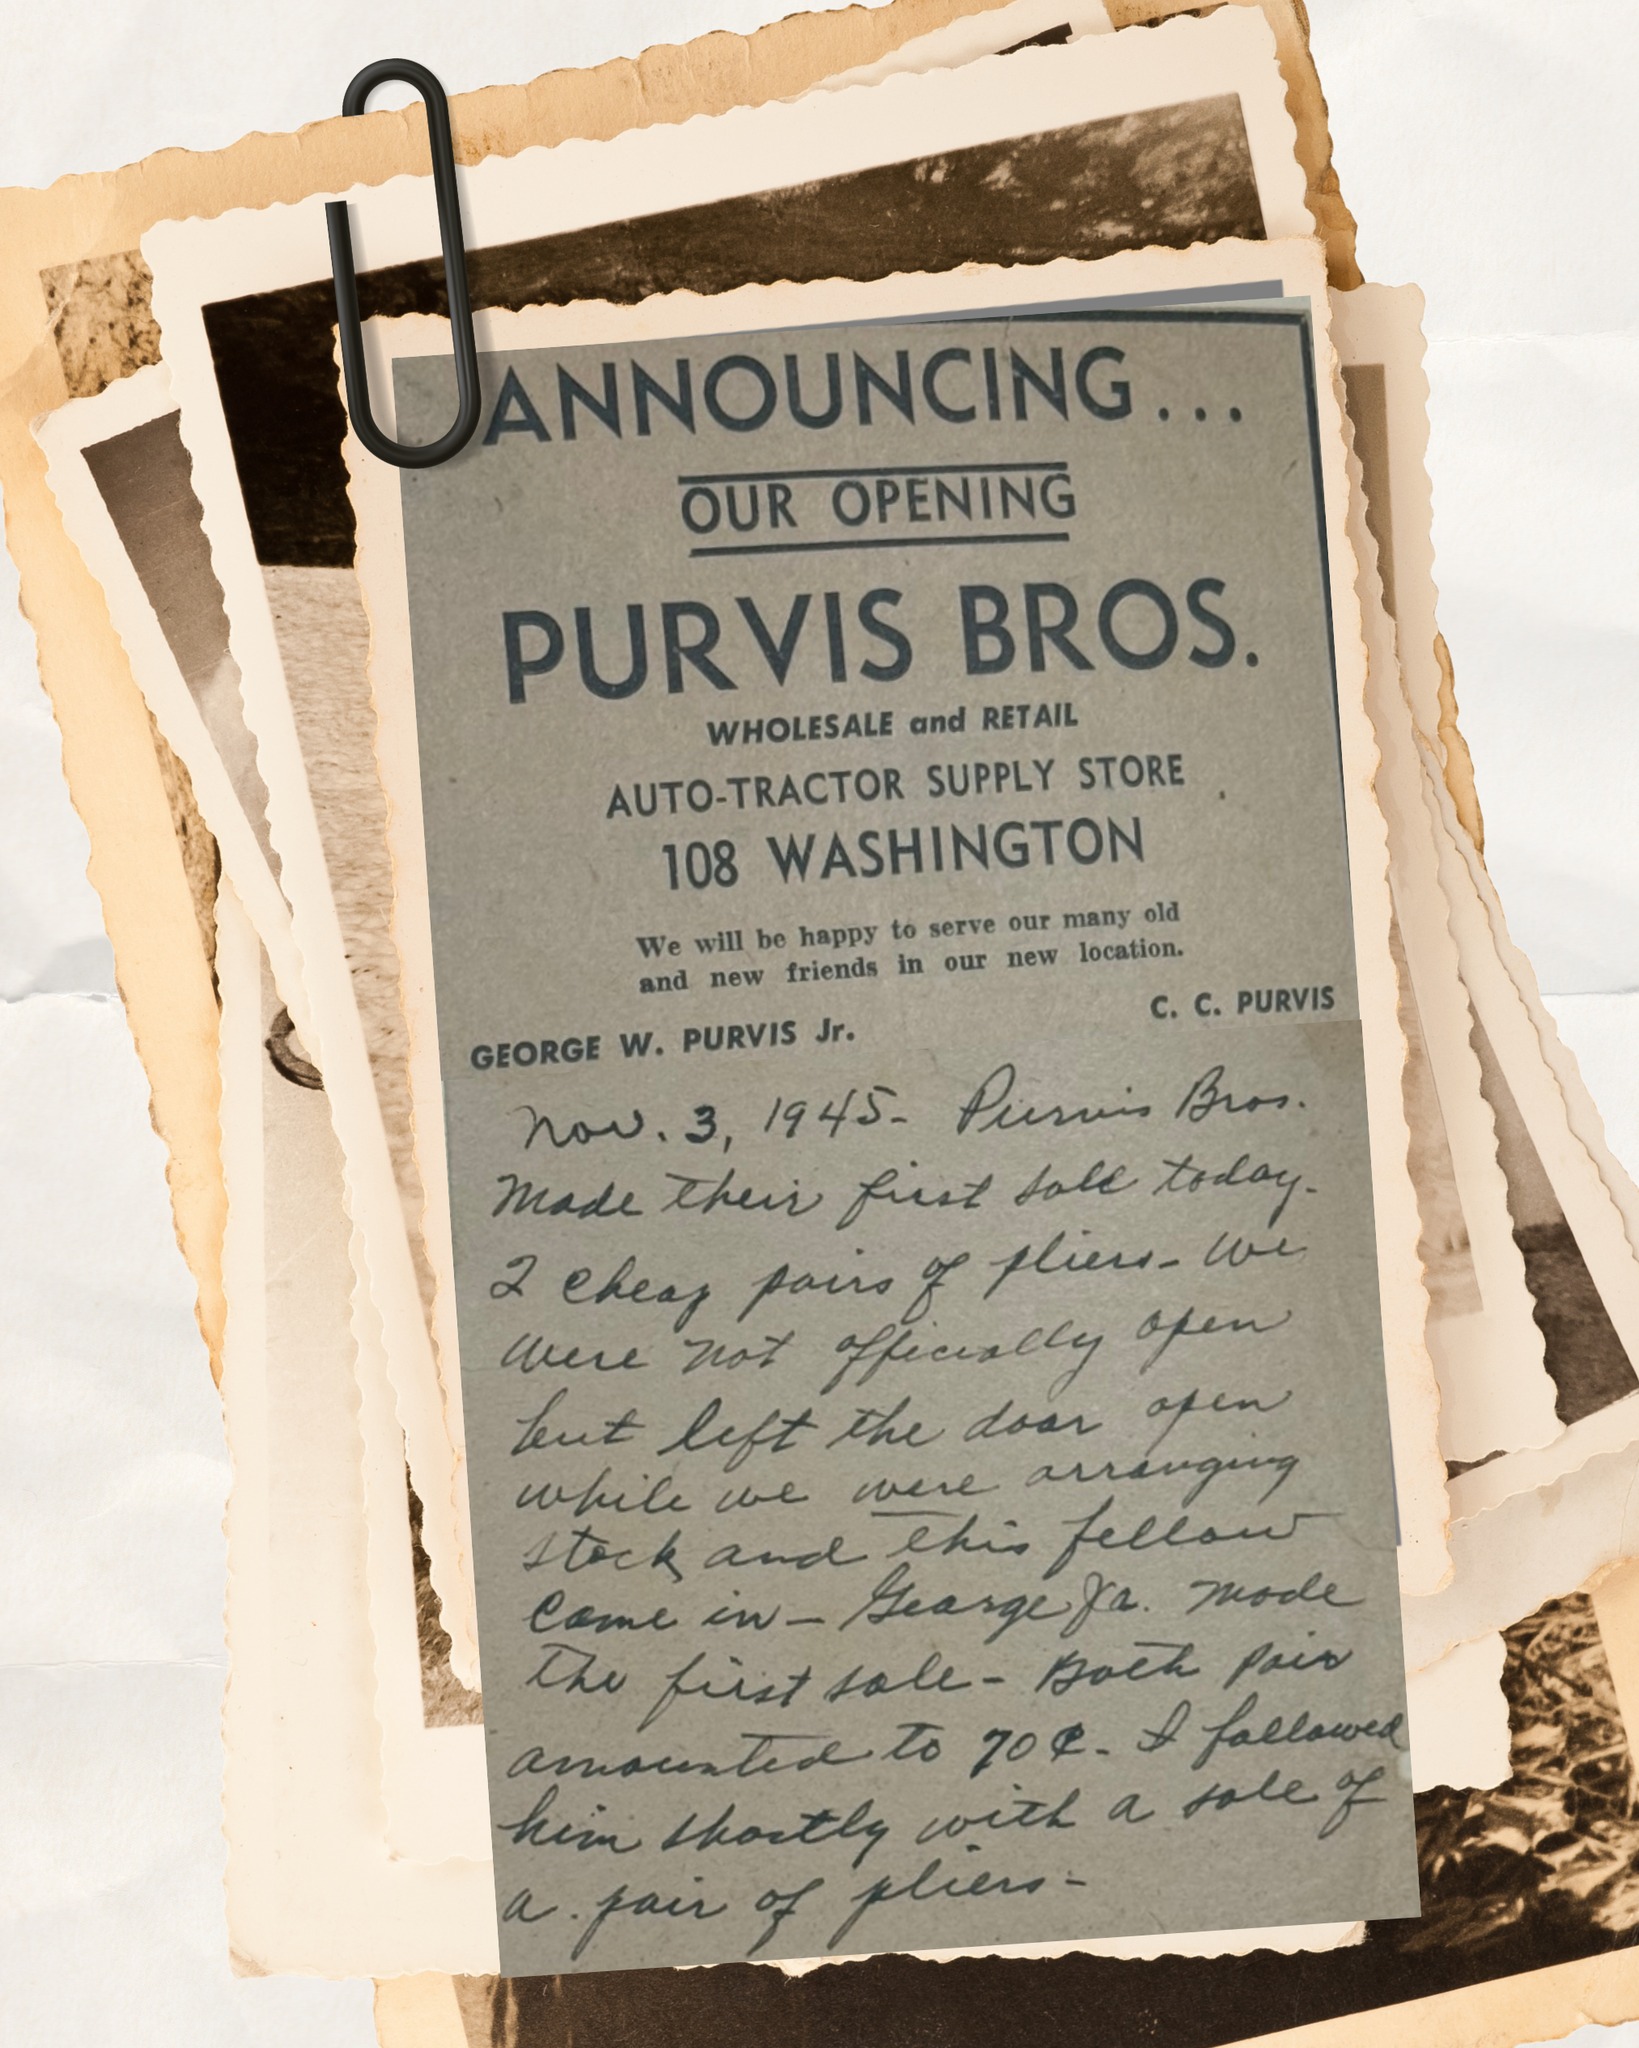 ANNOUNCING...
OUR OPENING
PURVIS BROS.
WHOLESALE and RETAIL
AUTO-TRACTOR SUPPLY STORE
108 WASHINGTON
We will be happy to serve our many old
and new friends in our new location.
C. C. PURVIS
GEORGE W. PURVIS Jr.
Nov. 3, 1945- Purvis Bros.
Made their first sale today.
2 cheap pairs of pliers- We
were not officially open
but left the door open
while we were arranging
stock and this fellow
came in- George Jr. made
the first sale- Both pair
amounted to 70¢- I followed
him shortly with a sale of
a pair of pliers-